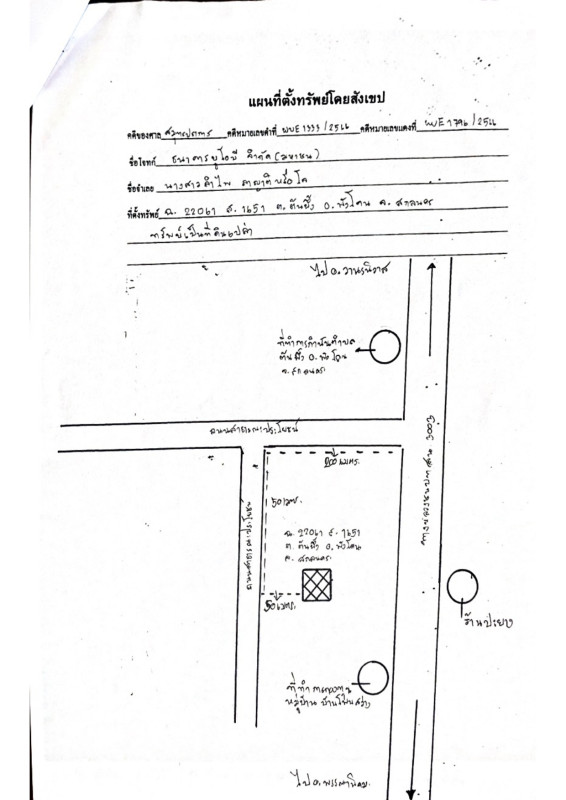 แผนที่ตั้งทรัพย์โดยสังเขป
คดีของศาล คดีหมายเลขดำที่ ผบE 1333/2566 คดีหมายเลขแดงที่ ผบE 1796/2566
ชื่อโจทก์ ธนาคารยูโอบี จำกัด (มหาชน)
ชื่อจำเลย นางสาวลำไพ
ที่ตั้งทรัพย์ ฉ. 22061 ต. 1651 ต. ต้นผึ้ง อ. พังโคน จ. สกลนคร
ทรัพย์เป็นที่ดินเปล่า
ไป อ. วานรนิวาส
ที่ทำการกำนันตำบล
ต้นผึ้ง อ. พังโคน
จ. สกลนคร
ถนนสาธารณประโยชน์
200 เมตร.
50 เมตร.
ฉ. 22061 ต. 1651
ต. ต้นผึ้ง อ. พังโคน
จ. สกลนคร
50 เมตร.
ถนนสาธารณประโยชน์
ทางหลวงหมายเลข
ร้านปะยาง
ที่ทำการกองทุน
หมู่บ้าน บ้านโพนสว่าง
ไป อ. พรรณานิคม